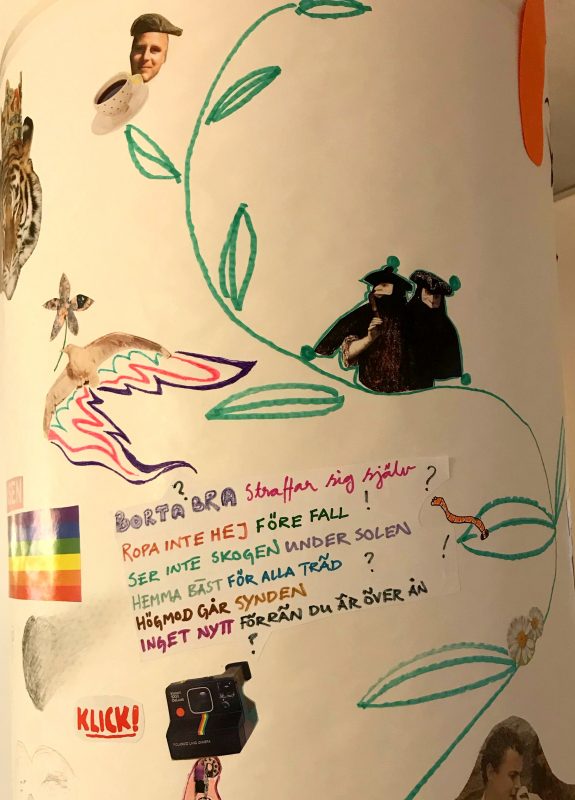 ?
BORTA BRA Straffar sig själv ?
ROPA INTE HEJ FÖRE FALL !
SER INTE SKOGEN UNDER SOLEN !
HEMMA BÄST FÖR ALLA TRÄD ?
HÖGMOD GÅR SYNDEN
INGET NYTT FÖRRÄN DU ÄR ÖVER ÅN
?
KLICK!
POLAROID LAND CAMERA